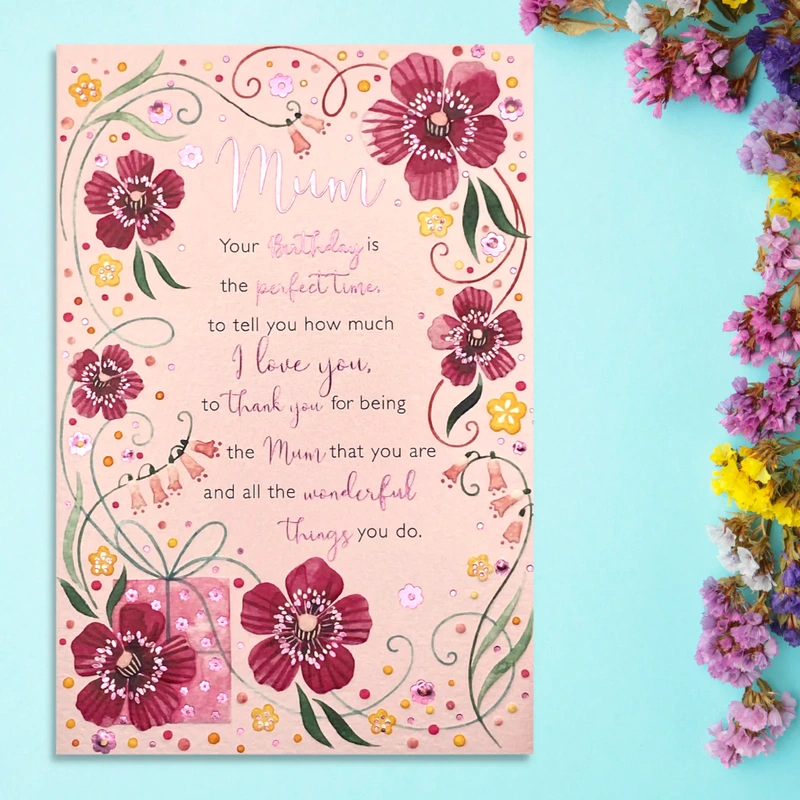 Mum
Your Birthday is
the perfect time,
to tell you how much
I love you,
to thank you for being
the Mum that you are
and all the wonderful
things you do.